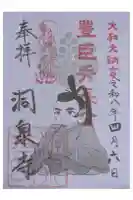 大和大納言
令和八年四月六日
豊臣秀長
奉拝
洞泉寺